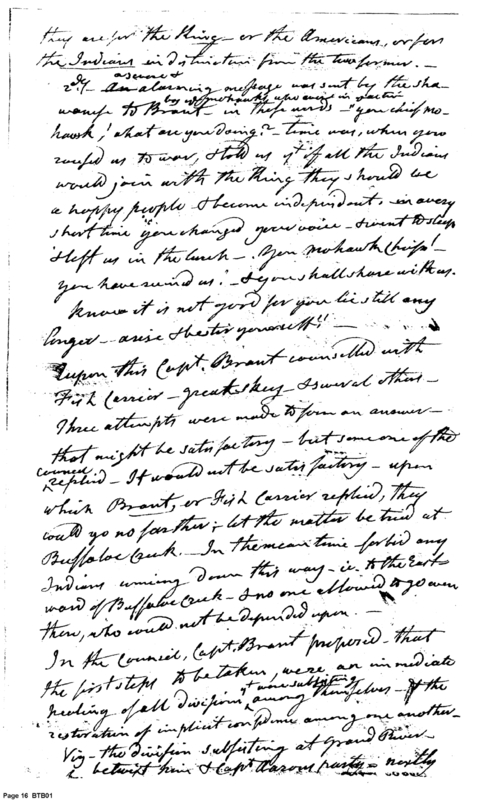 they are for the King – or the Americans, or for
the Indians in distinction from the two former. –
a severe &
2dly – An alarming message was sent by the Sha-
by way in
wanese to Brant – in these words – "you chief Mo-
hawk! what are you doing? – Time was, when you
roused us to war, & told us yt if all the Indians
would join with the King they should be
a happy people & become independant. – in a very
short time you changed your voice – & went to sleep
& left us in the lurch – You Mohawk Chief!
you have ruined us! – & you shall share with us.
Know it is not good for you lie still any
longer – arise & bestir yourself!" –
Upon this Capt. Brant counselled with
Fish Carrier – great sky & several others –
Three attempts were made to form an answer –
that might be satisfactory – but some one of the
council
replied – It would not be satisfactory – upon
which Brant, or Fish Carrier replied, they
could go no farther; let the matter be tried at
Buffaloe Creek. – In the mean time – forbid any
Indians coming down this way – ie. to the East-
ward of Buffaloe Creek – & no one allowed to go even
there, who could not be depended upon. –
In the Council, Capt. Brant proposed – that
the first steps to be taken, were, an immediate
yt were subsisting
healing of all divisions among themselves – & the
restoration of implicit confidence among one another –
Viz – the division subsisting at Grand River
i.e. betwixt him & Capt Aarons party – nextly
Page 16 BTB01